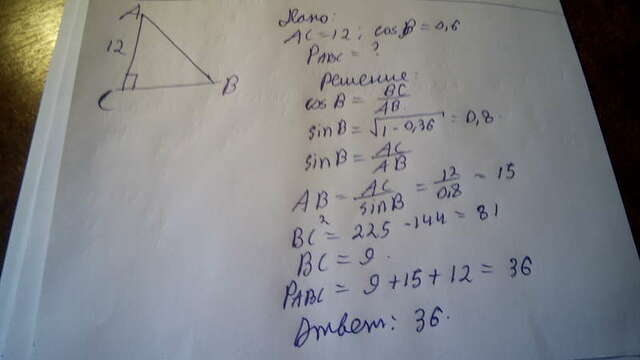 A
12
C
B
Дано:
AC = 12; cosB = 0,6
P_ABC = ?
Решение:
cosB = BC/AB
sinB = √1 - 0,36 = 0,8.
sinB = AC/AB
AB = AC/sinB = 12/0,8 = 15
BC² = 225 - 144 = 81
BC = 9.
P_ABC = 9 + 15 + 12 = 36
Ответ: 36.